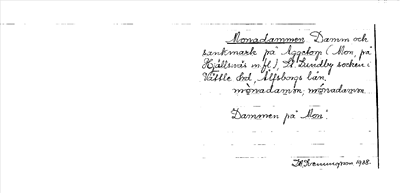 Monadammen Damm och
sankmark på Aggetorp (Mon, på
Hjällsnäs m.fl.), St. Lundby socken i
Vättle hd, Älfsborgs län.
mònadamm, mònadamm
Dammen på "Mon".
1908.